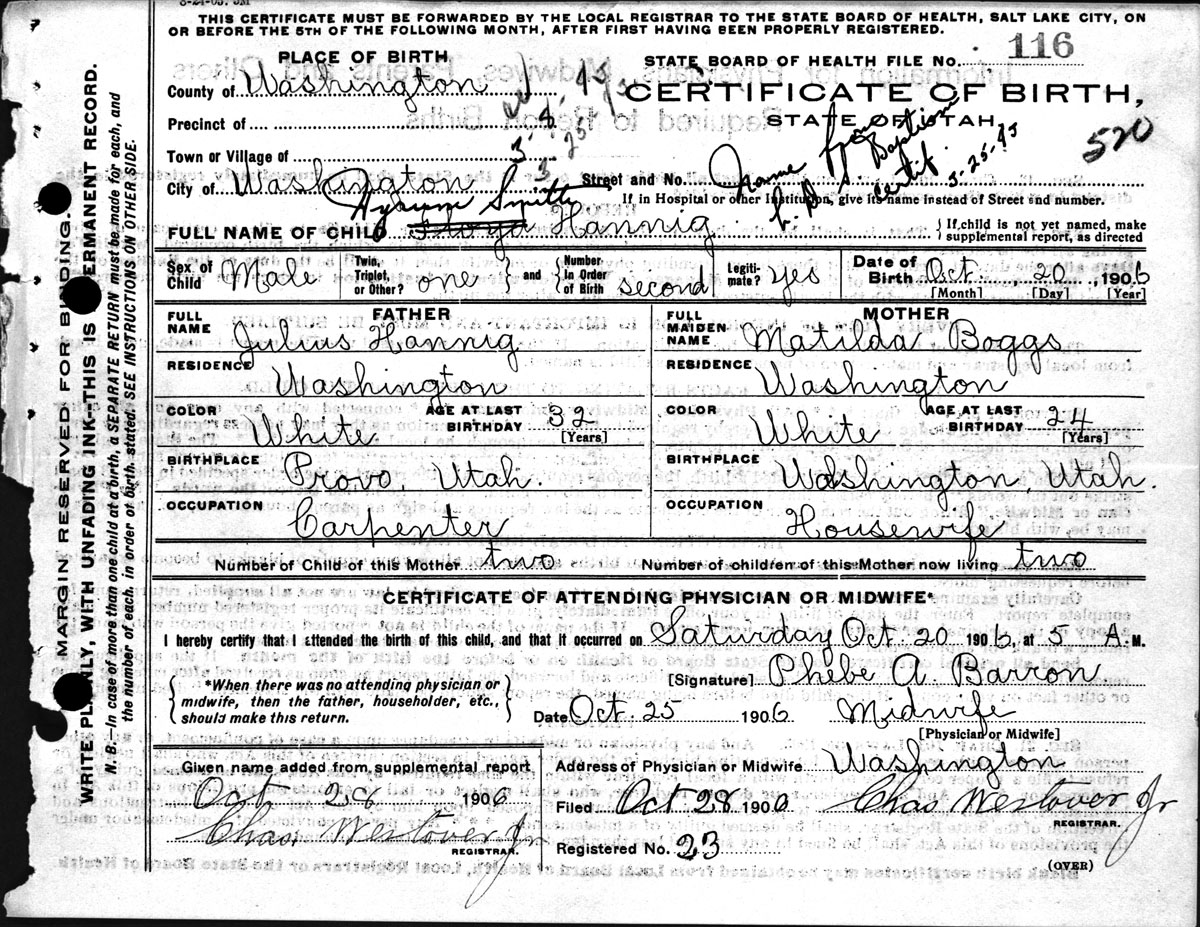 8-24-05. 5M
THIS CERTIFICATE MUST BE FORWARDED BY THE LOCAL REGISTRAR TO THE STATE BOARD OF HEALTH, SALT LAKE CITY, ON
OR BEFORE THE 5TH OF THE FOLLOWING MONTH, AFTER FIRST HAVING BEEN PROPERLY REGISTERED.
PLACE OF BIRTH
STATE BOARD OF HEALTH FILE No. 116
County of Washington
CERTIFICATE OF BIRTH,
STATE OF UTAH
520
Precinct of
3-8-45
3-25
Town or Village of
Name from
Baptism
certif.
3-25-45
City of Washington
Street and No.
If in Hospital or other Institution, give its name instead of Street and number.
Hyrum Smith
FULL NAME OF CHILD Floyd Hannig
If child is not yet named, make
supplemental report, as directed
Sex of Child Male
Twin, Triplet, or Other? one
and
Number In Order of Birth second
Legiti-mate? yes
Date of Birth Oct. 20, 1906
[Month] [Day] [Year]
FATHER
FULL NAME Julius Hannig
RESIDENCE Washington
COLOR White
AGE AT LAST BIRTHDAY 32 [Years]
BIRTHPLACE Provo, Utah.
OCCUPATION Carpenter
MOTHER
FULL MAIDEN NAME Matilda Boggs
RESIDENCE Washington
COLOR White
AGE AT LAST BIRTHDAY 24 [Years]
BIRTHPLACE Washington, Utah.
OCCUPATION Housewife
Number of Child of this Mother two
Number of children of this Mother now living two
CERTIFICATE OF ATTENDING PHYSICIAN OR MIDWIFE*
I hereby certify that I attended the birth of this child, and that it occurred on Saturday Oct. 20 1906, at 5 A. M.
*When there was no attending physician or
midwife, then the father, householder, etc.,
should make this return.
[Signature] Phebe A. Barron
Date Oct. 25 1906 Midwife
[Physician or Midwife]
Given name added from supplemental report
Oct 28 1906
Chas Westover Jr
REGISTRAR.
Address of Physician or Midwife Washington
Filed Oct 28 1906 Chas Westover Jr
REGISTRAR.
Registered No. 23
(OVER)
MARGIN RESERVED FOR BINDING.
WRITE PLAINLY, WITH UNFADING INK—THIS IS PERMANENT RECORD.
N. B.—In case of more than one child at a birth, a SEPARATE RETURN must be made for each, and
the number of each, in order of birth, stated. SEE INSTRUCTIONS ON OTHER SIDE.